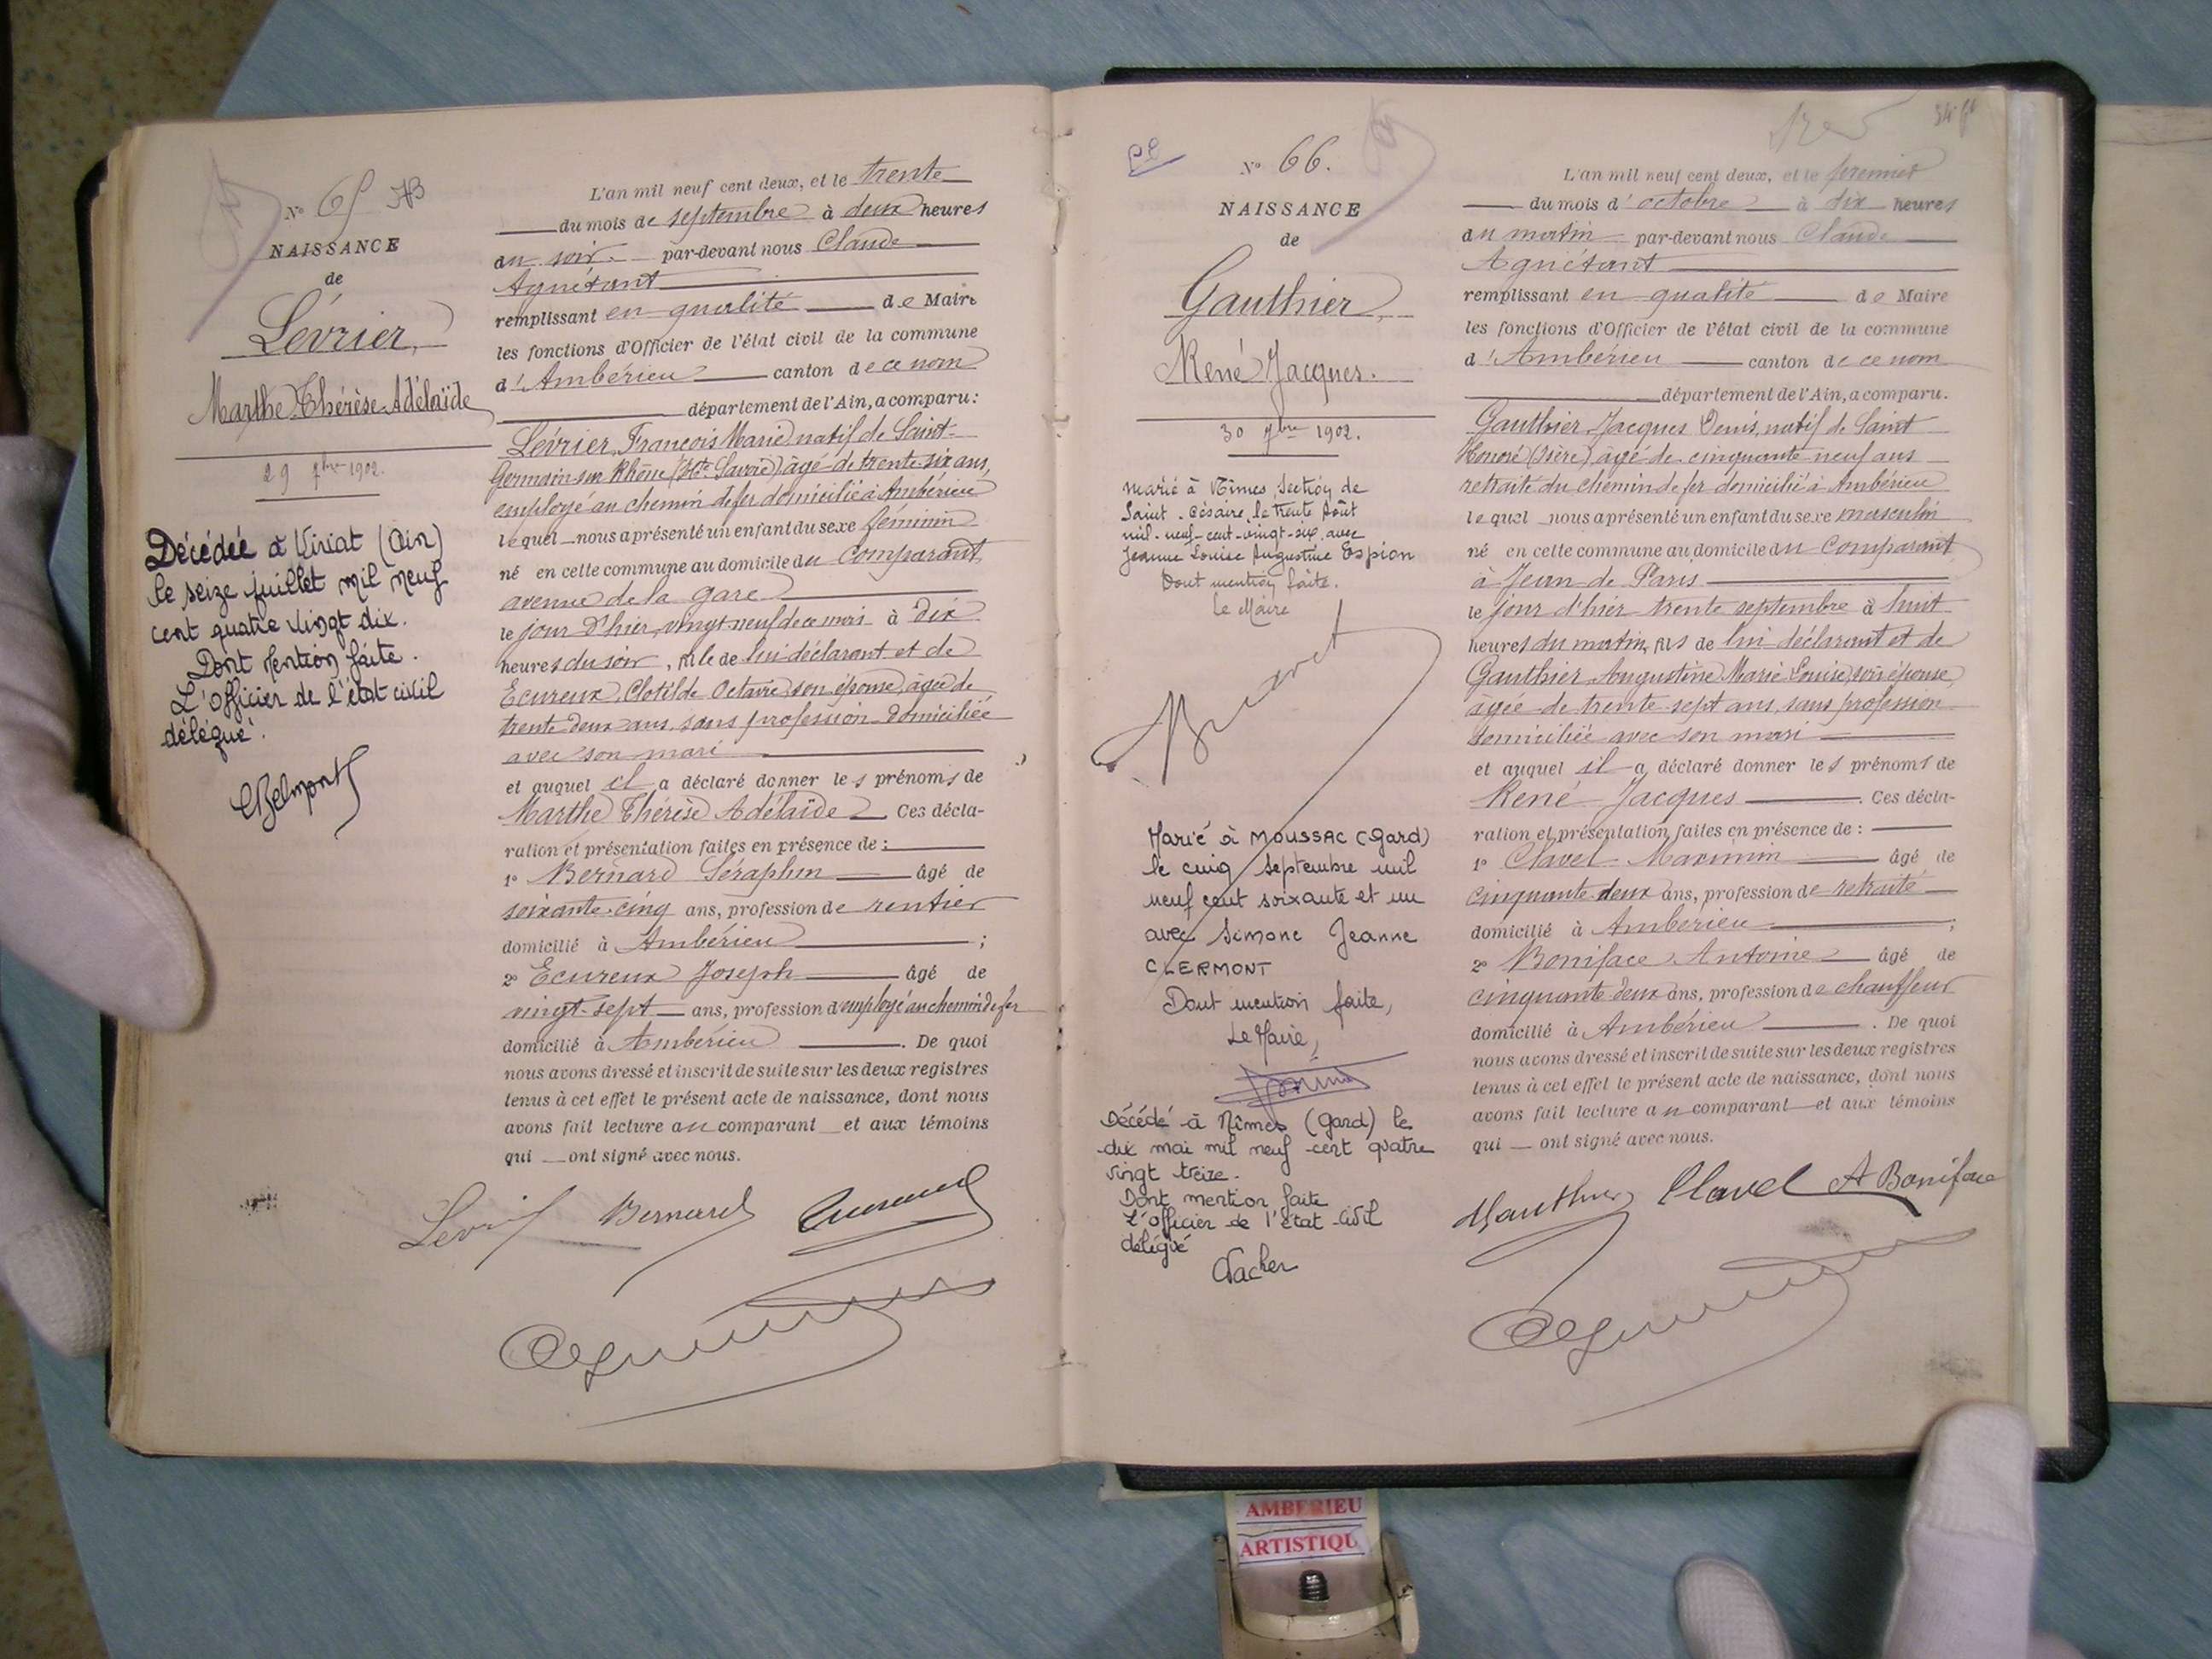 N° 65
NAISSANCE
de
Lévrier,
Marthe Thérèse Adélaïde
29 7bre 1902.
Décédée à Viriat (Ain)
le seize juillet mil neuf
cent quatre vingt dix.
Dont mention faite.
L'officier de l'état civil
délégué.
CBelmont
L'an mil neuf cent deux, et le trente
du mois de septembre à deux heures
du soir. par-devant nous Claude
Agnétant
remplissant en qualité de Maire
les fonctions d'Officier de l'état civil de la commune
d'Ambérieu canton de ce nom
département de l'Ain, a comparu :
Lévrier, François Marie, natif de Saint-
Germain sur Rhône (Hte Savoie) âgé de trente-six ans,
employé au chemin de fer domicilié à Ambérieu
lequel nous a présenté un enfant du sexe féminin
né en cette commune au domicile du comparant,
avenue de la gare
le jour d'hier, vingt-neuf de ce mois à dix
heures du soir, fille de lui déclarant et de
Ecureux, Clotilde Octavie, son épouse, âgée de
trente deux ans, sans profession domiciliée
avec son mari
et auquel il a déclaré donner les prénoms de
Marthe Thérèse Adélaïde. Ces décla-
ration et présentation faites en présence de :
1° Bernard Séraphin âgé de
soixante-cinq ans, profession de rentier
domicilié à Ambérieu ;
2° Ecureux Joseph âgé de
vingt-sept ans, profession d'employé au chemin de fer
domicilié à Ambérieu . De quoi
nous avons dressé et inscrit de suite sur les deux registres
tenus à cet effet le présent acte de naissance, dont nous
avons fait lecture au comparant et aux témoins
qui ont signé avec nous.
Bernard
N° 66.
NAISSANCE
de
Gauthier,
René Jacques.
30 7bre 1902.
Marié à Nîmes, Section de
Saint-Césaire, le trente Août
mil-neuf-cent-vingt-six, avec
Jeanne Louise Augustine Espion
Dont mention faite.
Le Maire
Marié à MOUSSAC (Gard)
le cinq septembre mil
neuf cent soixante et un
avec Simone Jeanne
CLERMONT
Dont mention faite,
Le Maire,
Décédé à Nîmes (Gard) le
dix mai mil neuf cent quatre
vingt treize.
Dont mention faite
L'officier de l'état civil
délégué
L'an mil neuf cent deux, et le premier
du mois d'octobre à dix heures
du matin par-devant nous Claude
Agnétant
remplissant en qualité de Maire
les fonctions d'Officier de l'état civil de la commune
d'Ambérieu canton de ce nom
département de l'Ain, a comparu.
Gauthier Jacques Denis, natif de Saint
Honoré (Isère) âgé de cinquante neuf ans
retraité du chemin de fer domicilié à Ambérieu
lequel nous a présenté un enfant du sexe masculin
né en cette commune au domicile du comparant
à Jean de Paris
le jour d'hier trente septembre à huit
heures du matin, fils de lui déclarant et de
Gauthier Augustine Marie Louise, son épouse,
âgée de trente-sept ans, sans profession
domiciliée avec son mari
et auquel il a déclaré donner les prénoms de
René Jacques . Ces décla-
ration et présentation faites en présence de :
1° Clavel Maximin âgé de
cinquante deux ans, profession de retraité
domicilié à Ambérieu ;
2° Boniface Antoine âgé de
cinquante deux ans, profession de chauffeur
domicilié à Ambérieu . De quoi
nous avons dressé et inscrit de suite sur les deux registres
tenus à cet effet le présent acte de naissance, dont nous
avons fait lecture au comparant et aux témoins
qui ont signé avec nous.
Gauthier Clavel A Boniface
AMBERIEU
ARTISTIQU